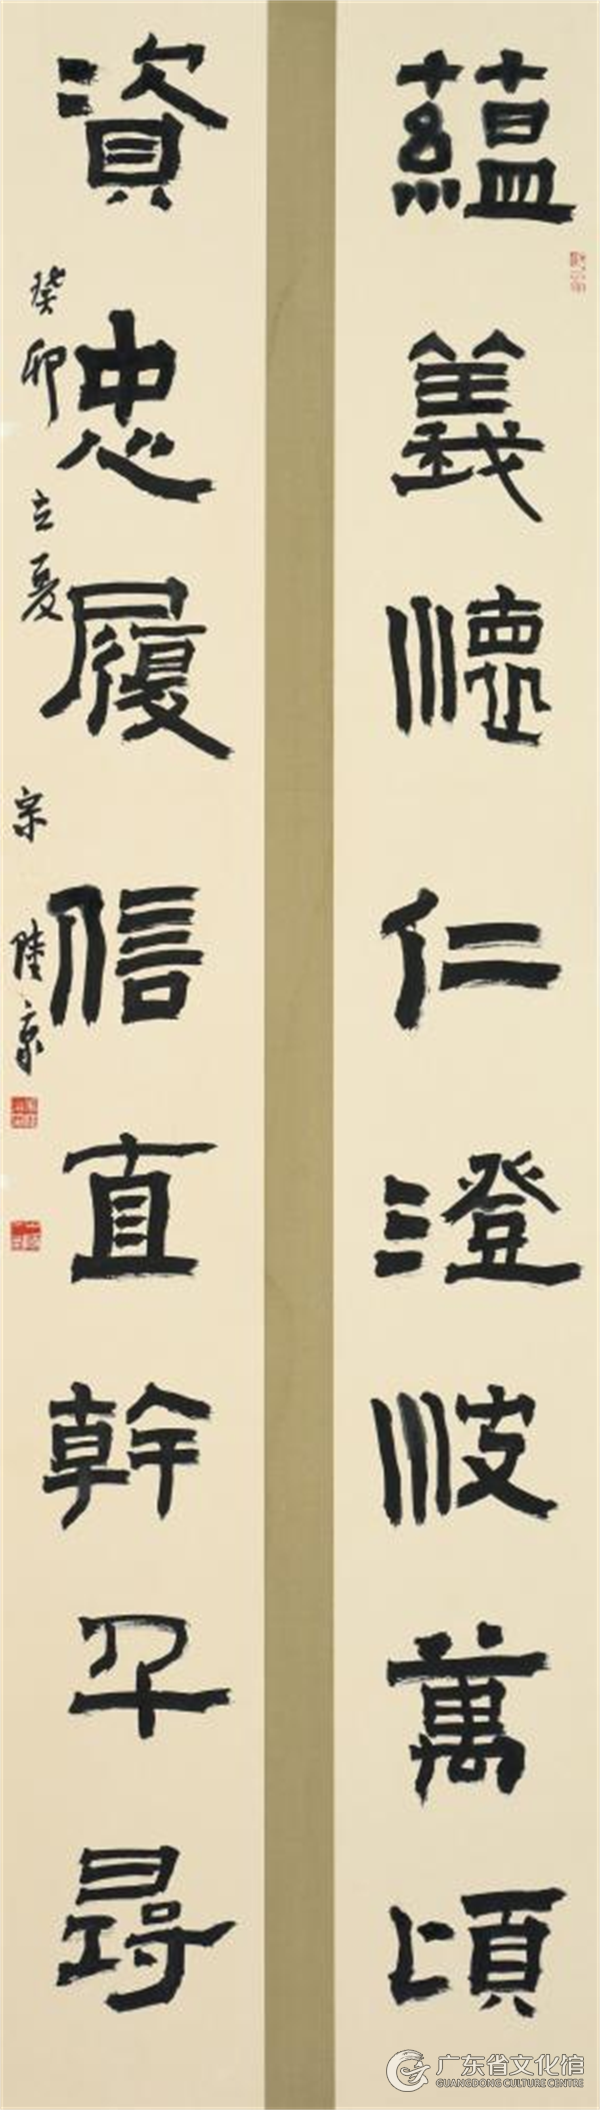 蘊義懷仁澄波萬頃
資忠履信直幹千尋
癸卯立夏 陸康
广东省文化馆
GUANGDONG CULTURE CENTRE